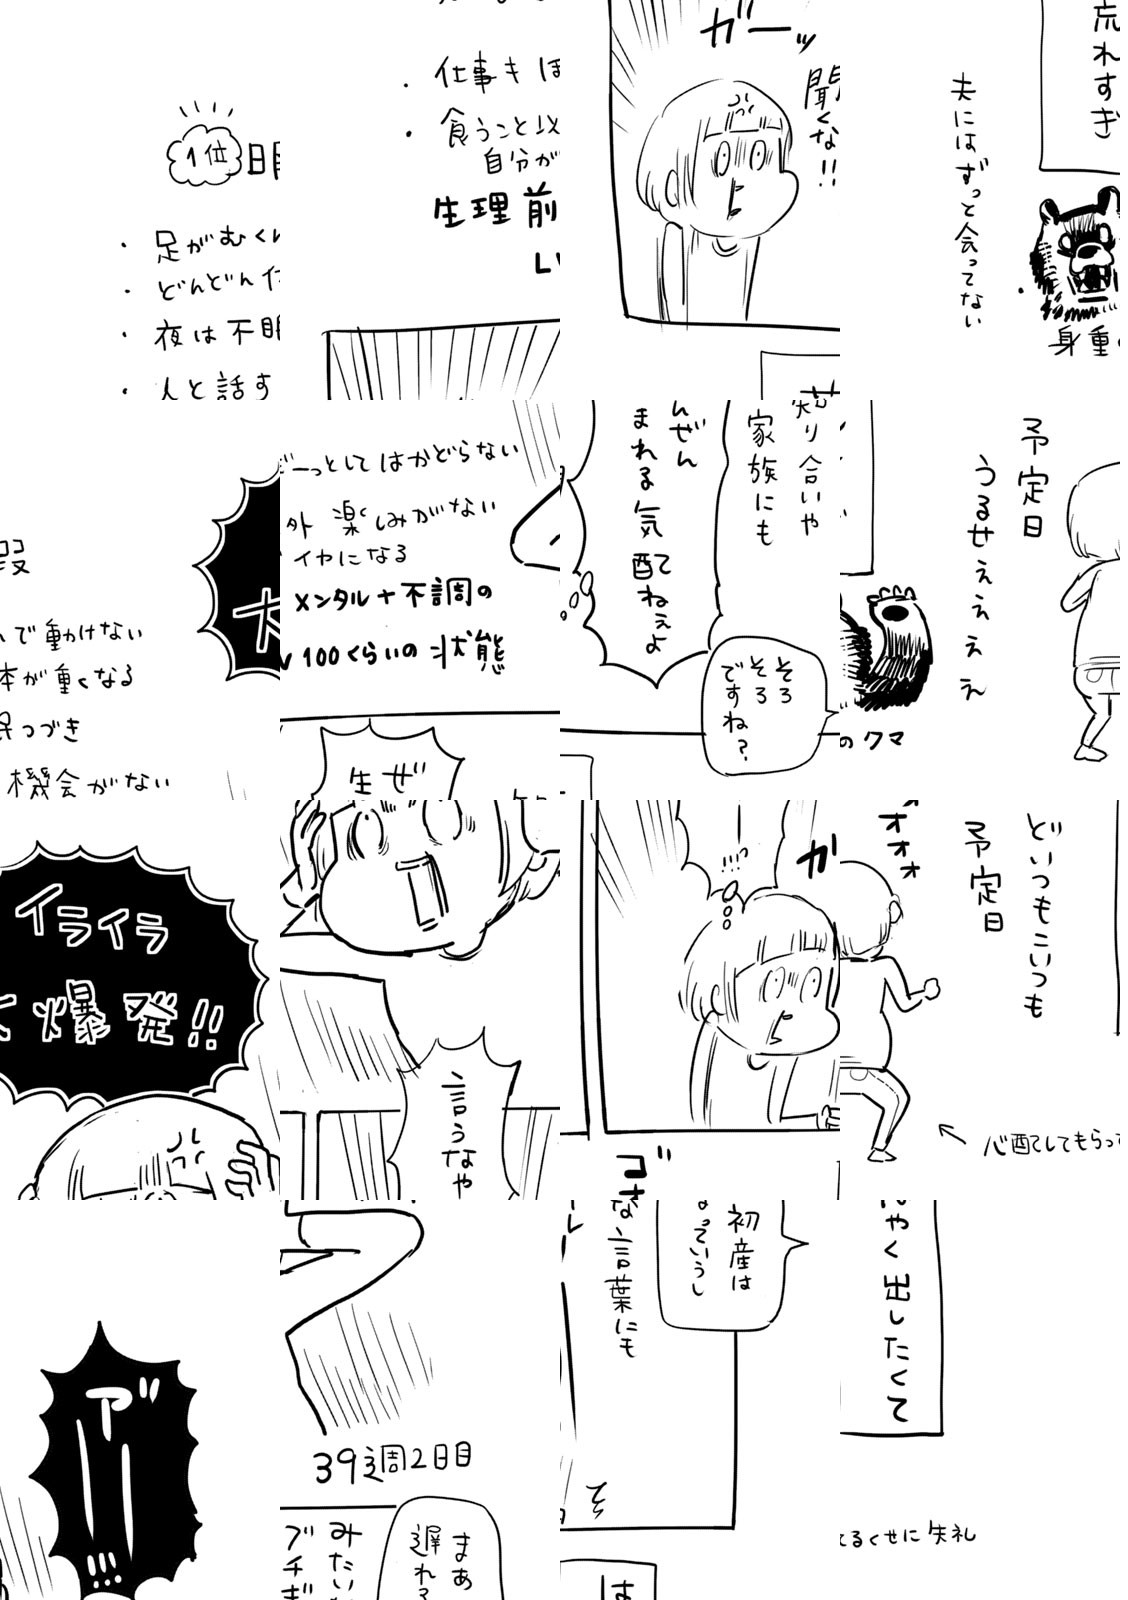 1位
・足がむく
・どんどん
・夜は不
・人と話す
・仕事も
・食うこと以
自分が
生理前
ガーッ
聞くな!!
荒れすぎ
夫にはずっと会ってない
身重
で動けない
が重くなる
つづき
機会がない
ーっとしてはかどらない
外楽しみがない
イヤになる
メンタル+不調の
100くらいの状態
ぜ
生
知り合いや
家族にも
んぜん
まれる気配ねぇよ
そろ
そろ
ですね?
予定日
うるせぇぇぇぇ
のクマ
イライラ
爆発!!
言うなや
!!!
ガ
オオォ
どいつもこいつも
予定日
←心配してもらって
ア゛
!!!
39週2日目
まあ
遅れ
みたい
ブチギ
初産は
っていうし
な言葉にも
は
やく出したくて
るくせに失礼